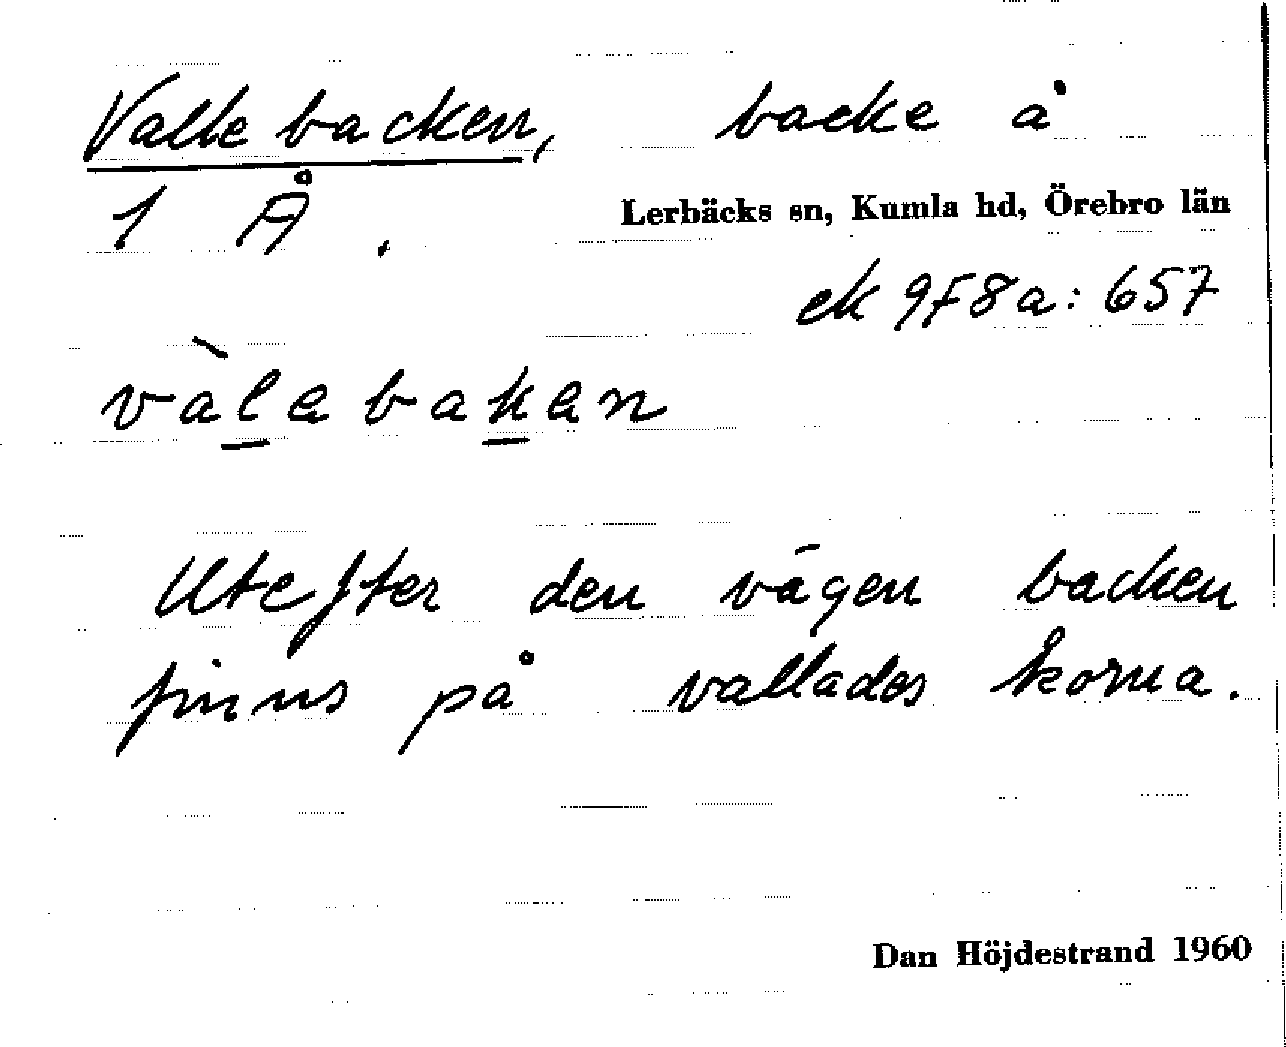 Vallebacken, backe å
1 Å.
Lerbäcks sn, Kumla hd, Örebro län
ek 9F8a: 657
vàlabakan
Utefter den vägen backen
finns på vallades korna.
Dan Höjdestrand 1960